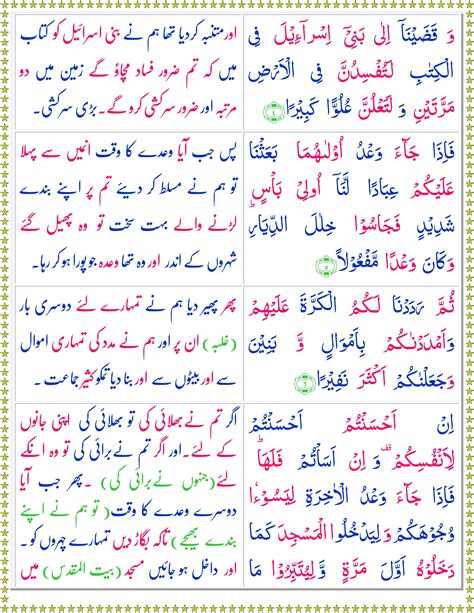 وَ قَضَيْنَاۤ اِلٰى بَنِيْۤ اِسْرَآءِيْلَ فِي
الْكِتٰبِ لَتُفْسِدُنَّ فِي الْاَرْضِ
مَرَّتَيْنِ وَ لَتَعْلُنَّ عُلُوًّا كَبِيْرًا ٤
اور متنبہ کردیا تھا ہم نے بنی اسرائیل کو کتاب
میں کہ تم ضرور فساد مچاؤ گے زمین میں دو
مرتبہ اور ضرور سرکشی کروگے۔ بڑی سرکشی۔
فَاِذَا جَآءَ وَعْدُ اُوْلٰىهُمَا بَعَثْنَا
عَلَيْكُمْ عِبَادًا لَّنَاۤ اُولِيْ بَاْسٍ
شَدِيْدٍ فَجَاسُوْا خِلٰلَ الدِّيَارِؕ
وَ كَانَ وَعْدًا مَّفْعُوْلًا ٥
پس جب آیا وعدے کا وقت انمیں سے پہلا
تو ہم نے مسلط کر دیئے تم پر اپنے بندے
لڑنے والے بہت سخت تو وہ پھیل گئے
شہروں کے اندر اور وہ تھا وعدہ جو پورا ہو کر رہا۔
ثُمَّ رَدَدْنَا لَكُمُ الْكَرَّةَ عَلَيْهِمْ
وَاَمْدَدْنٰكُمْ بِاَمْوَالٍ وَّ بَنِيْنَ
وَجَعَلْنٰكُمْ اَكْثَرَ نَفِيْرًا ٦
پھر پھیر دیا ہم نے تمہارے لئے دوسری بار
(غلبہ) ان پر اور ہم نے مدد کی تمہاری اموال
سے اور بیٹوں سے اور بنا دیا تمکو کثیر جماعت ۔
اِنْ اَحْسَنْتُمْ اَحْسَنْتُمْ
لِاَنْفُسِكُمْ۫ وَ اِنْ اَسَاْتُمْ فَلَهَاؕ
فَاِذَا جَآءَ وَعْدُ الْاٰخِرَةِ لِيَسُوْٓءٗا
وُجُوْهَكُمْ وَ لِيَدْخُلُوا الْمَسْجِدَ كَمَا
دَخَلُوْهُ اَوَّلَ مَرَّةٍ وَّ لِيُتَبِّرُوْا مَا
اگر تم نے بھلائی کی تو بھلائی کی اپنی جانوں
کے لئے۔ اور اگر تم نے برائی کی تو وہ انکے
لئے (جنہوں نے برائی کی) ۔ پھر جب آیا
دوسرے وعدے کا وقت (تو ہم نے اپنے
بندے بھیجے) تاکہ بگاڑ دیں تمہارے چہروں کو ۔
اور داخل ہو جائیں مسجد (بیت المقدس) میں